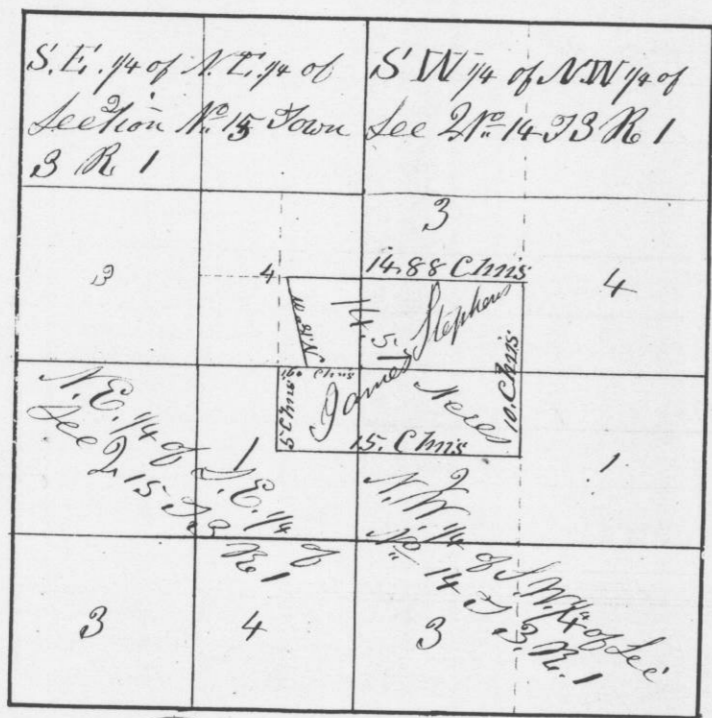 S.E. 1/4 of N.E. 1/4 of
Section No. 15 Town
3 R 1
S W 1/4 of N.W 1/4 of
Sec No. 14 T3 R 1
3
3
4
14.88 Chns
4
14.51
James Stephens
Acres
1.60 Chns
5 Chns
10. Chns.
15. Chns
N.E. 1/4 of S.E. 1/4 of
Sec 15 T3
R 1
1
N.W. 1/4 of S.W. 1/4 of Sec
No. 14 T 3. R. 1
1
3
4
3